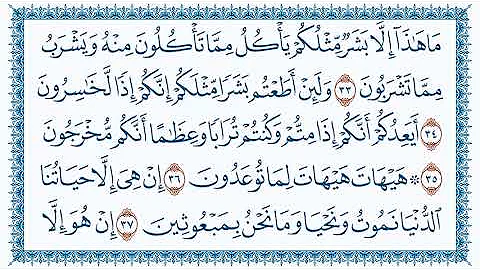 مَا هَٰذَآ إِلَّا بَشَرٌ مِّثْلُكُمْ يَأْكُلُ مِمَّا تَأْكُلُونَ مِنْهُ وَيَشْرَبُ
مِمَّا تَشْرَبُونَ ٣٣ وَلَئِنْ أَطَعْتُم بَشَرًا مِّثْلَكُمْ إِنَّكُمْ إِذًا لَّخَٰسِرُونَ
٣٤ أَيَعِدُكُمْ أَنَّكُمْ إِذَا مِتُّمْ وَكُنتُمْ تُرَابًا وَعِظَٰمًا أَنَّكُم مُّخْرَجُونَ
٣٥ ۞ هَيْهَاتَ هَيْهَاتَ لِمَا تُوعَدُونَ ٣٦ إِنْ هِىَ إِلَّا حَيَاتُنَا
ٱلدُّنْيَا نَمُوتُ وَنَحْيَا وَمَا نَحْنُ بِمَبْعُوثِينَ ٣٧ إِنْ هُوَ إِلَّا